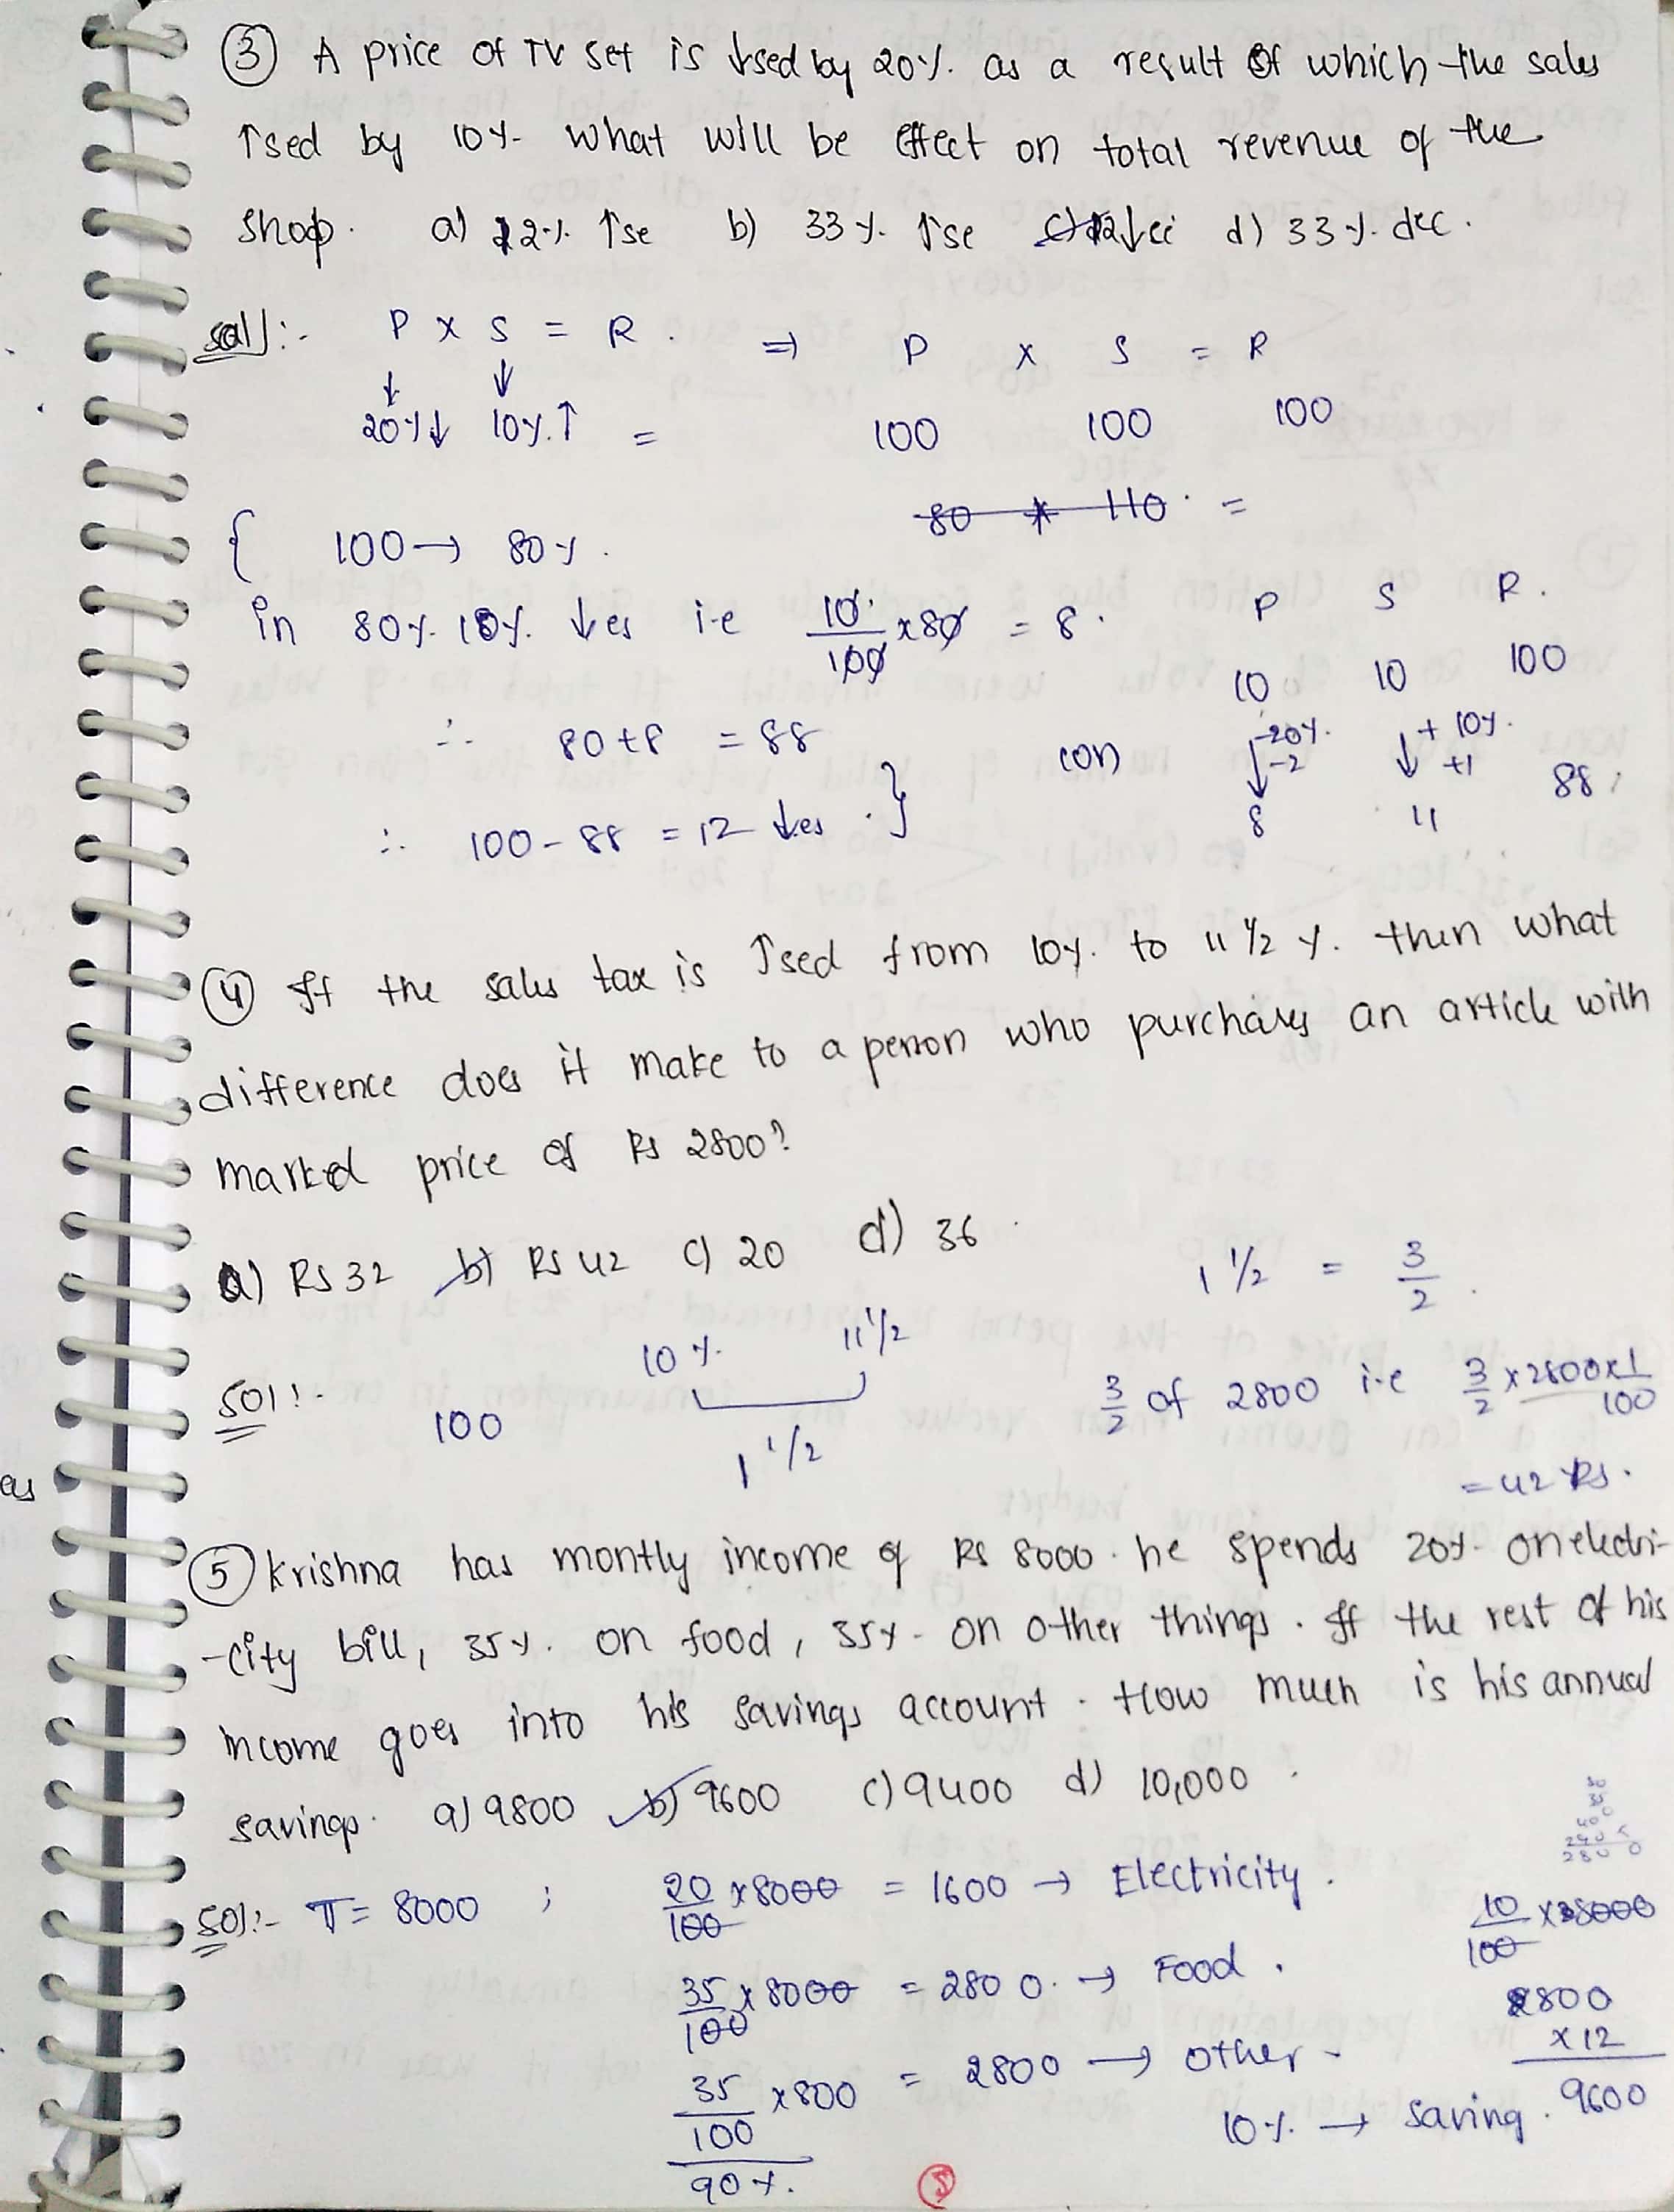 ③ A price of TV set is ↓sed by 20%. as a result of which the sales
↑sed by 10% what will be effect on total revenue of the
shop. a) 12%. ↑se b) 33%. ↑se c) 12↓ d) 33%. dec.
sol:- P x S = R . ⇒ P x S = R
↓ ↓
20%↓ 10%.↑ = 100 100 100
80 * 110 . =
{ 100 → 80% .
P S R .
in 80%. 10%. ↓es i.e 10/100 x 80 = 8 .
10 10 100
∴ 80+8 = 88 con ↓ -20%. -2 ↓ + 10%. +1
8 11 88
∴ 100 - 88 = 12 ↓es . }
④ If the sales tax is ↑sed from 10%. to 11 1/2 %. then what
difference does it make to a person who purchases an article with
marked price of Rs 2800?
a) RS 32 b) RS 42 c) 20 d) 36 .
1 1/2 = 3/2 .
sol:- 100 10%. 11 1/2
1 1/2
3/2 of 2800 i.e 3/2 x 2800 x 1/100
= 42 Rs .
es
⑤ Krishna has montly income of Rs 8000 . he spends 20%. on electri-
-city bill, 35%. on food, 35%. on other things . If the rest of his
income goes into his savings account . How much is his annual
savings. a) 9800 b) 9600 c) 9400 d) 10,000 .
sol:- T = 8000 ; 20/100 x 8000 = 1600 → Electricity .
10/100 x 8000
35/100 x 8000 = 2800. → Food .
800
x 12
9600
35/100 x 800 = 2800 → other -
10%. → saving .
90%.
5